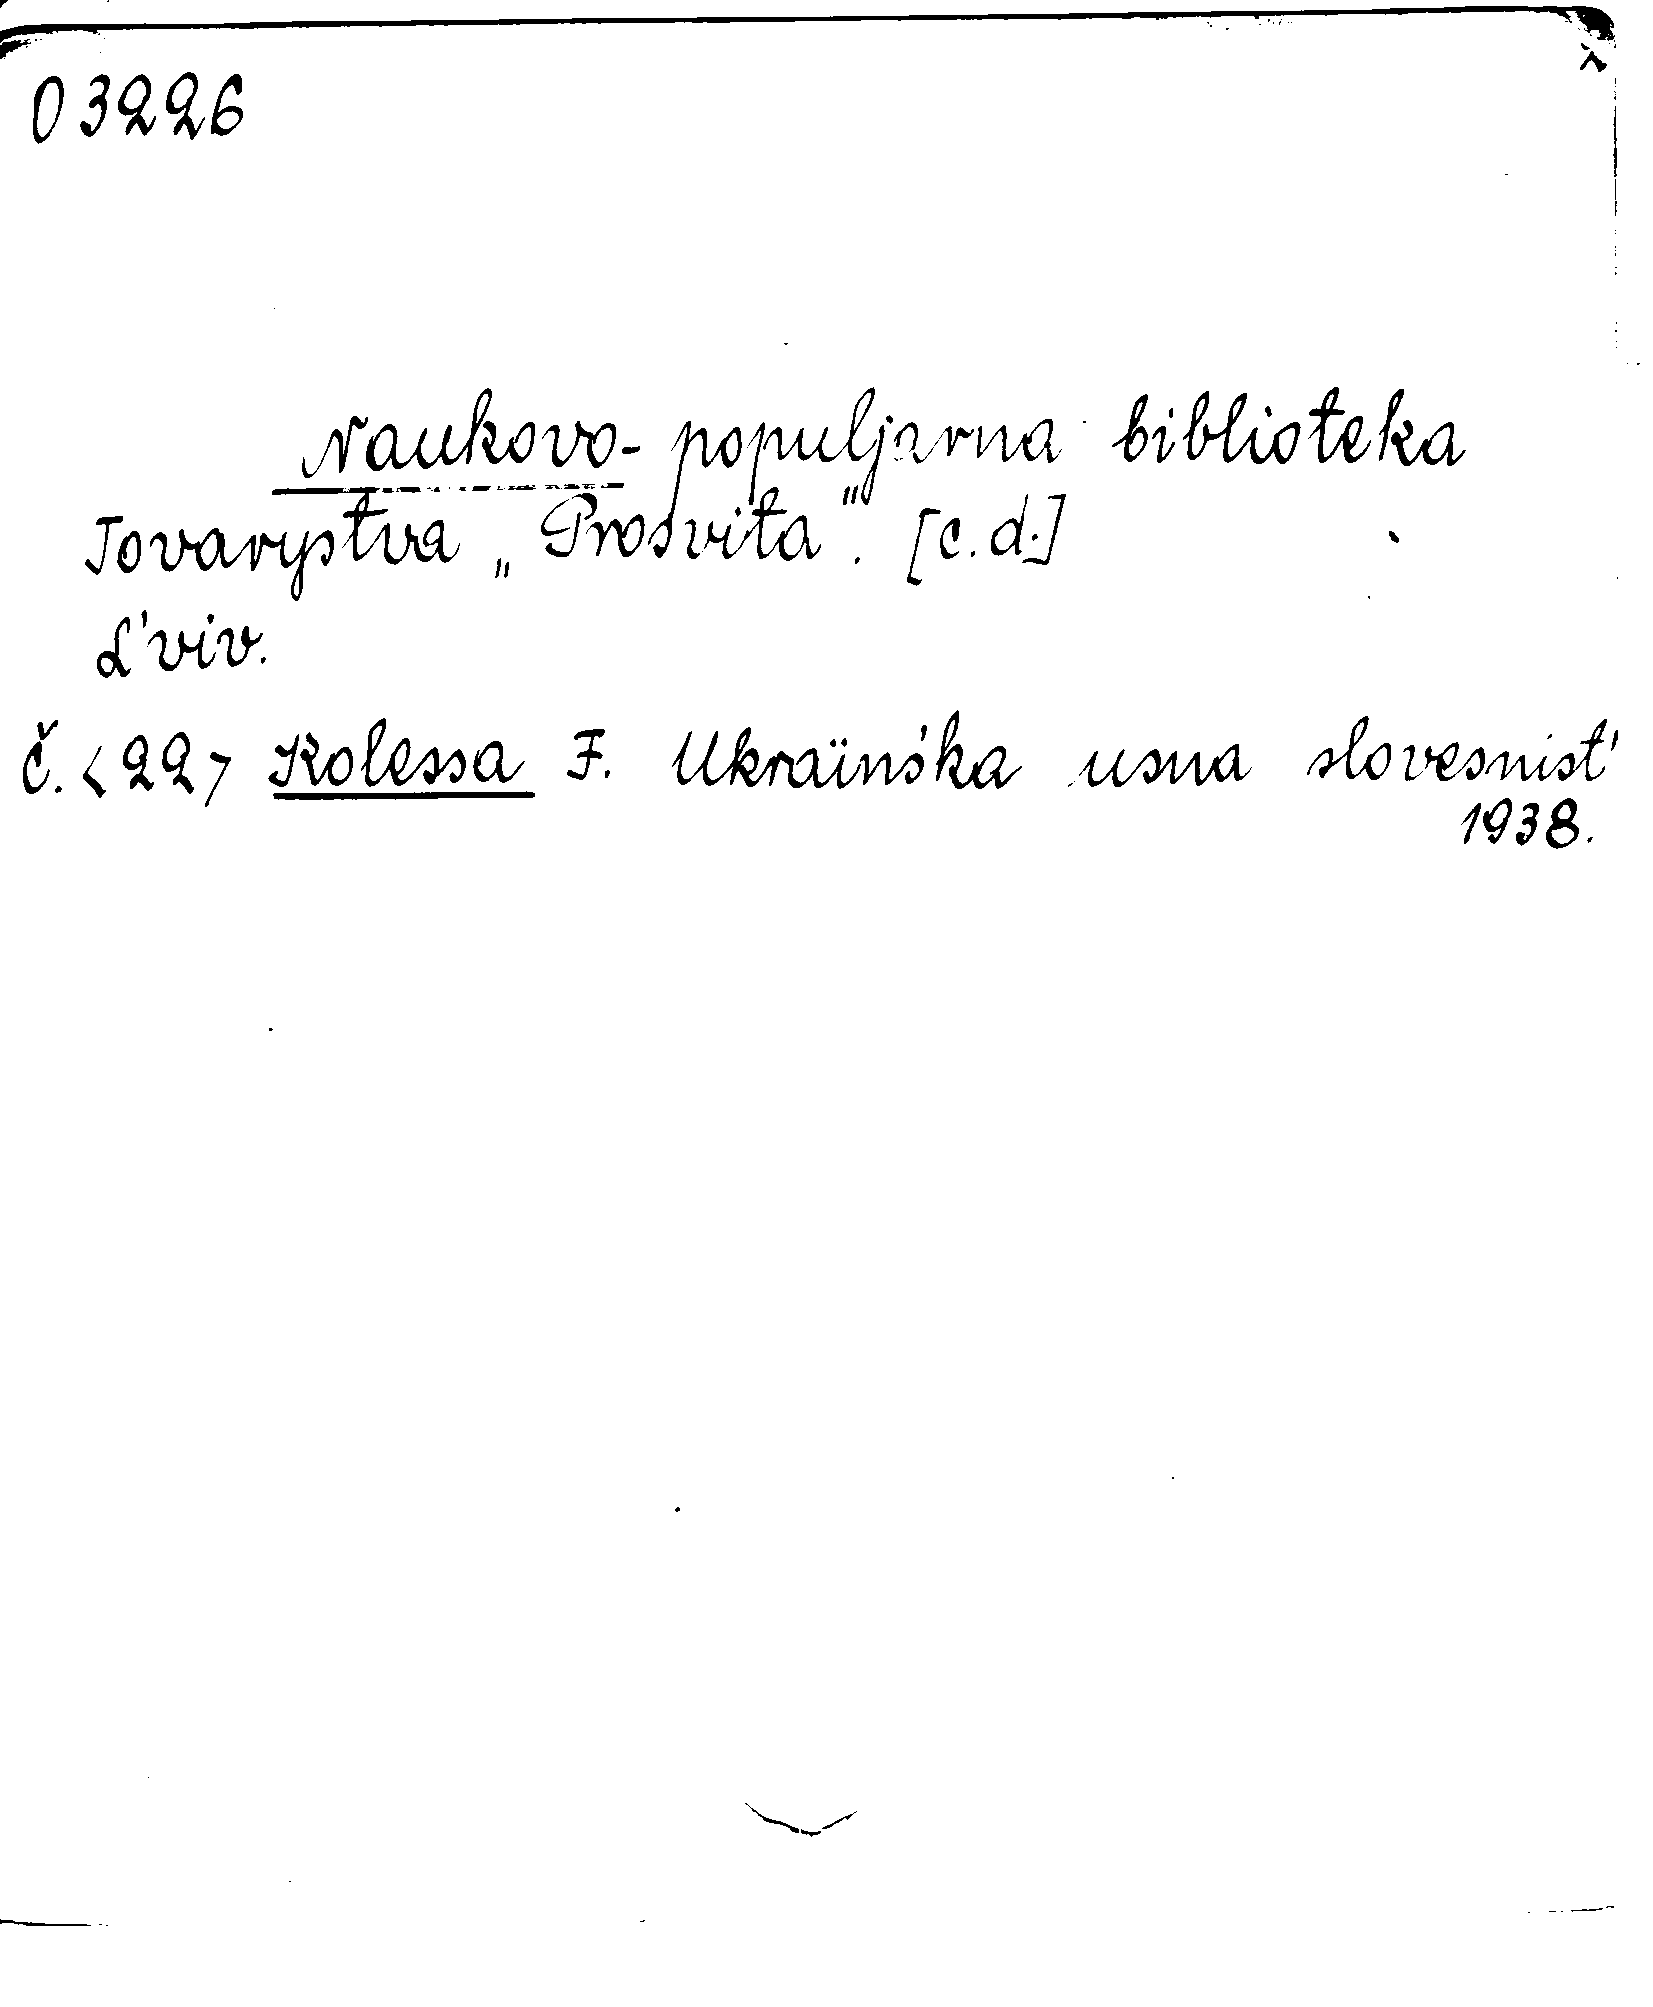 03226
Naukovo-populjarna biblioteka
Tovarystva „Prosvita". [c.d.]
L'viv.
Č. <22> Kolessa F. Ukraïnśka usna slovesnist'
1938.